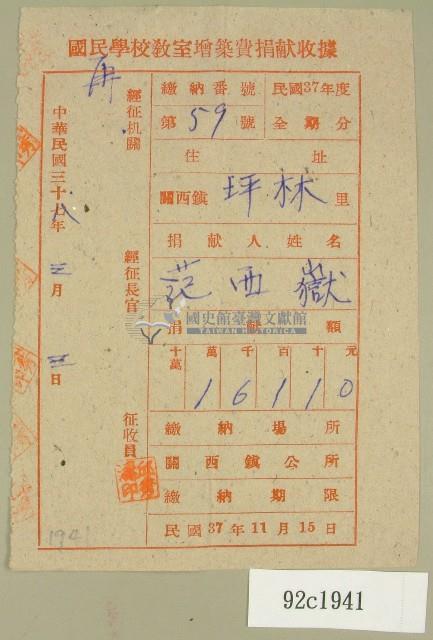 國民學校教室增築費捐献收據
再
繳納番號 民國37年度
第59號 全期分
住址
關西鎮坪林里
捐献人姓名
范西嶽
國史館臺灣文獻館
TAIWAN HISTORICA
捐献額
十萬 萬 千 百 十 元
1 6 1 1 0
繳納場所
關西鎮公所
繳納期限
民國37年11月15日
經征机關
經征長官
征收員
中華民國三十七年
月
日
1941
92c1941